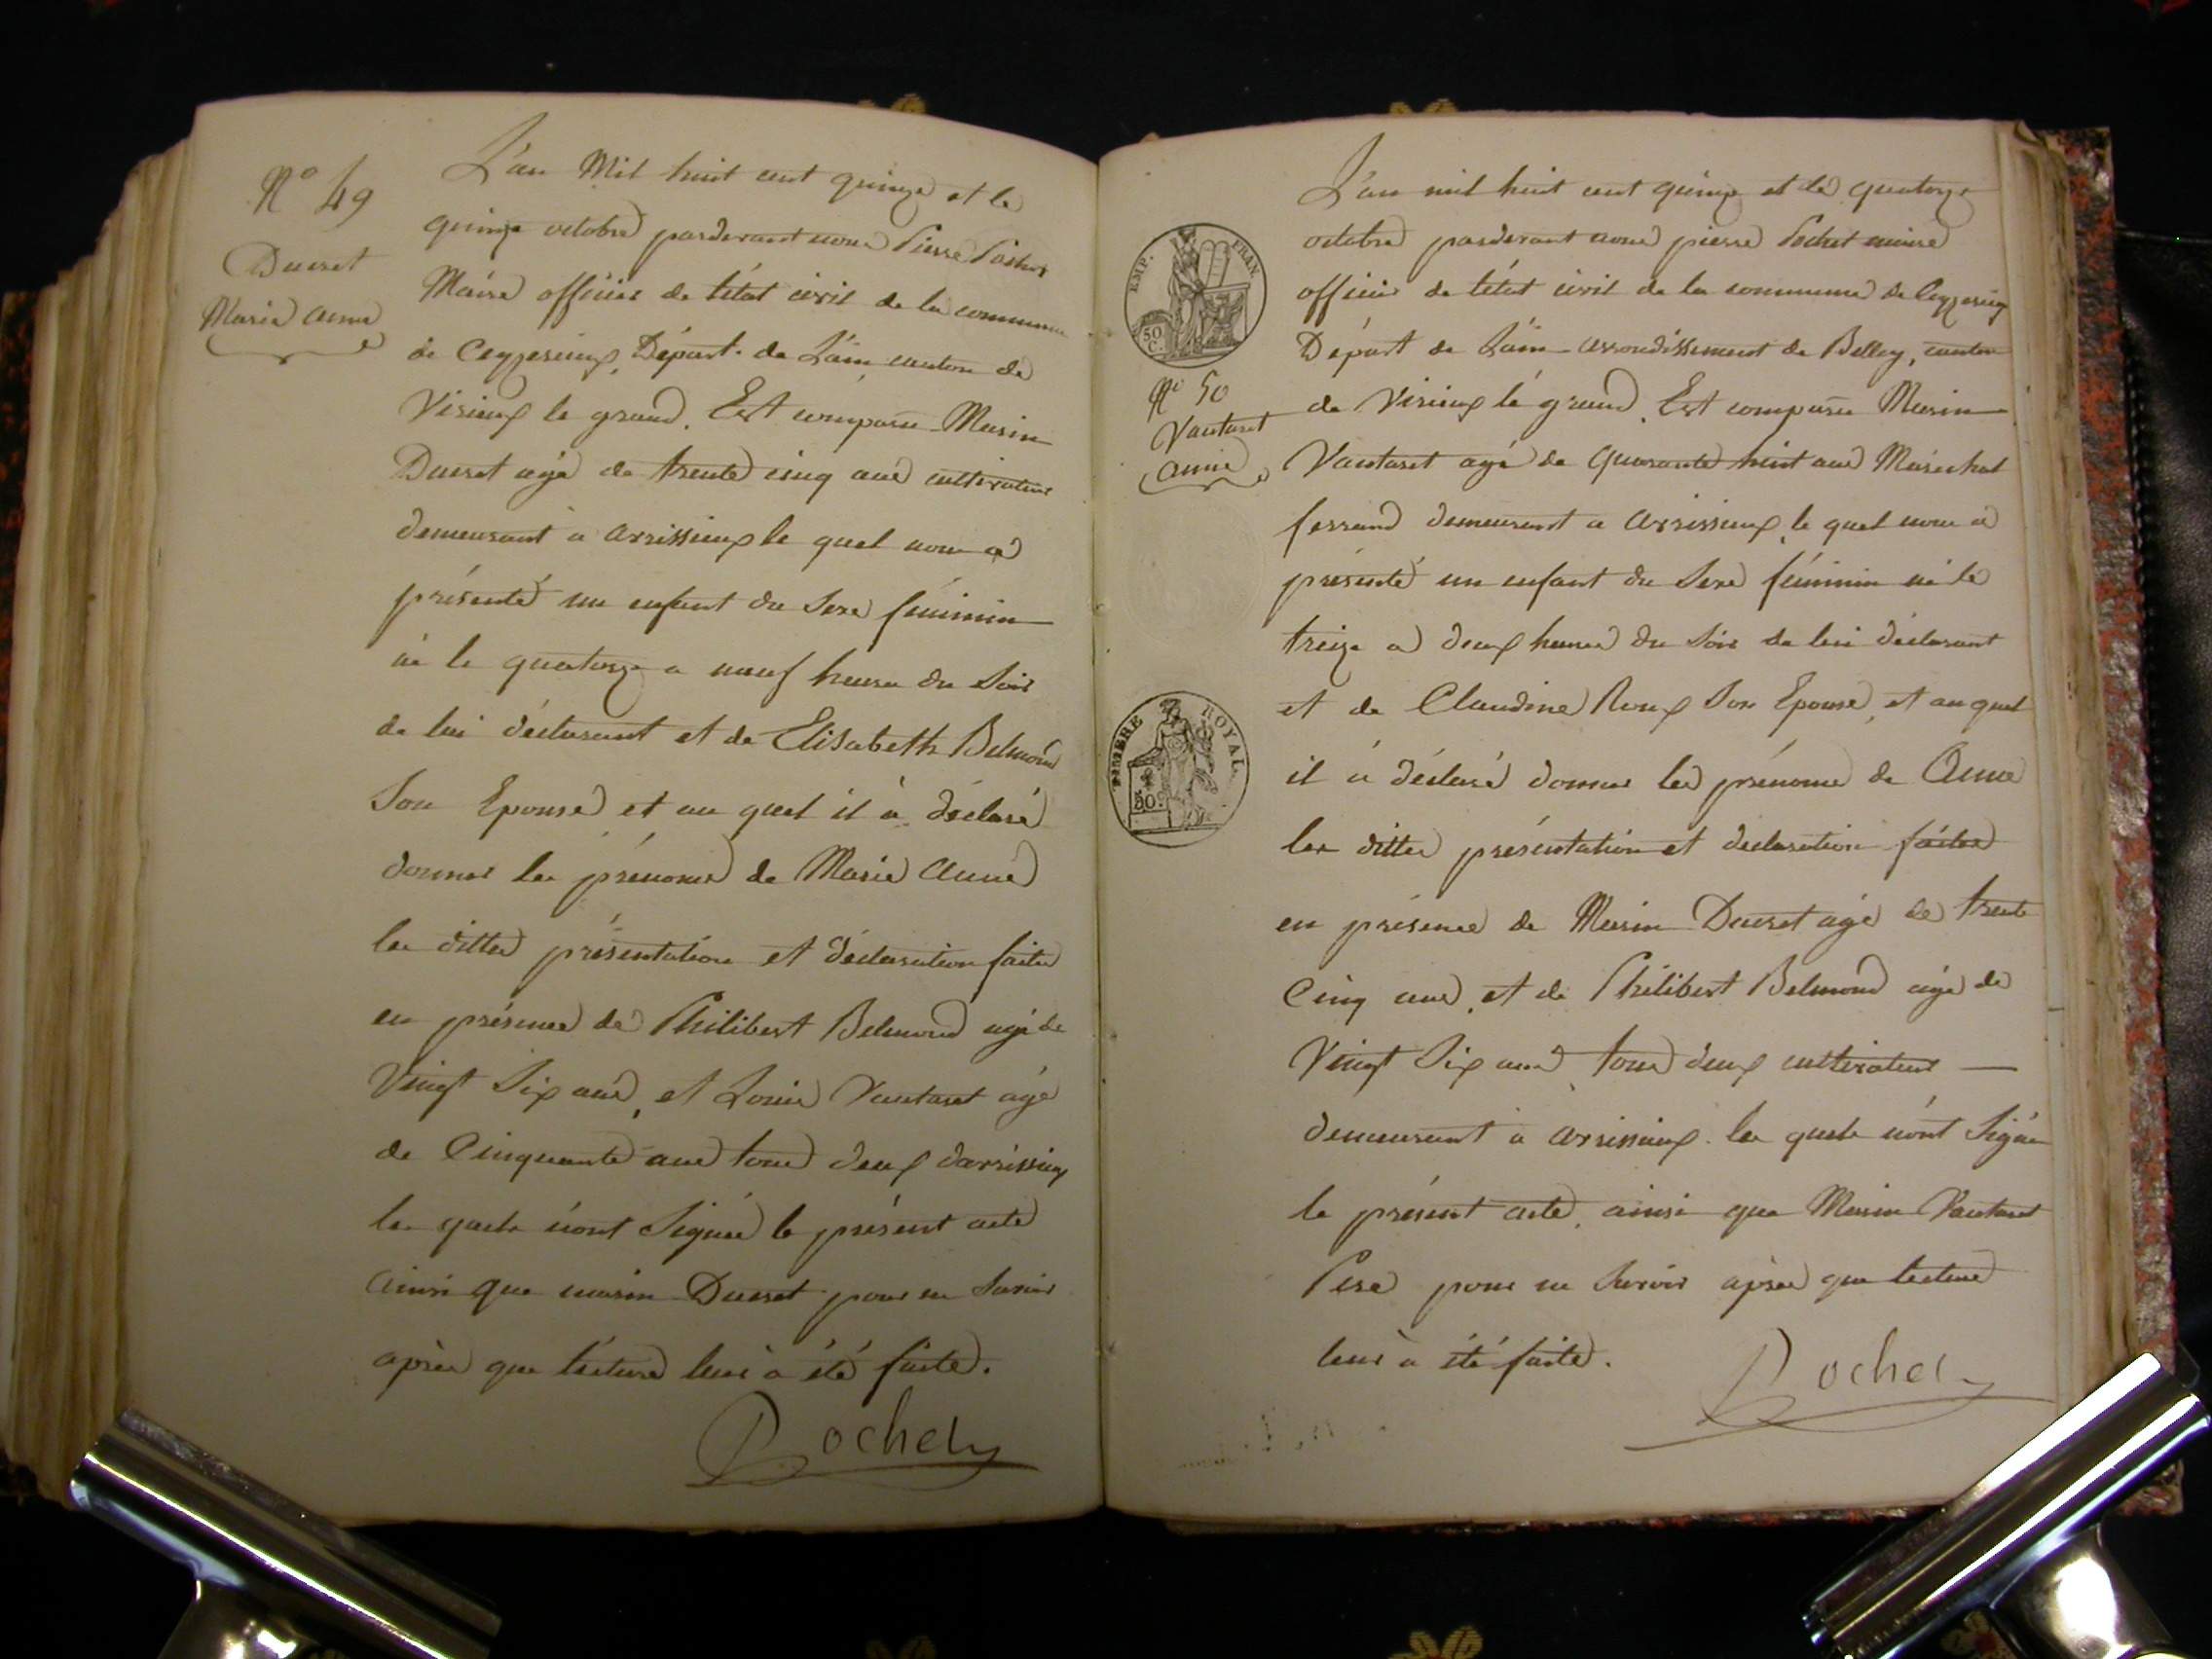 N° 49
Ducret
Marie anne
L'an Mil huit cent quinze et le
quinze octobre pardevant nous Pierre Pochet
Maire officier de l'état civil de la commune
de Ceyzerieux, Départ. de L'ain, canton de
Virieux le grand. Est comparu Marin
Ducret agé de trente cinq ans cultivateur
demeurant a arrissieux le quel nous a
présenté un enfant du Sexe féminin
né le quatorze a neuf heures du Soir
de lui déclarant et de Elisabeth Belmond
Son Epouse et au quel il à déclaré
donner les prénoms de Marie Anne
les dittes présentation et déclaration faites
en présence de Philibert Belmond agé de
Vingt Six ans, et Louis Vautaret agé
de Cinquante ans tous deux d'arrissieux
les quels n'ont Signés le présent acte
ainsi que marin Ducret pour ne Savoir
après que lecture leur à été faite.
Pochet
EMP. FRAN.
50 C.
N° 50
Vautaret
anne
TIMBRE ROYAL
50
L'an mil huit cent quinze et le quatorze
octobre pardevant nous pierre Pochet maire
officier de l'état civil de la commune de Ceyzerieux
Départ de L'ain arrondissement de Belley, canton
de Virieux le grand. Est comparu Marin
Vautaret agé de Quarante huit ans Maréchal
ferrand demeurant a arrissieux, le quel nous a
présenté un enfant du Sexe féminin né le
treize a deux heures du Soir de lui déclarant
et de Claudine Roux Son Epouse, et au quel
il à déclaré donner les prénoms de Anne
les dittes présentation et declaration faites
en présence de Marin Ducret agé de trente
Cinq ans, et de Philibert Belmond agé de
Vingt Six ans, tous deux cultivateurs
demeurant à arrissieux. les quels n'ont Signés
le présent acte, ainsi que Marin Vautaret
Pere pour ne Savoir après que lecture
leur à été faite.
Pochet